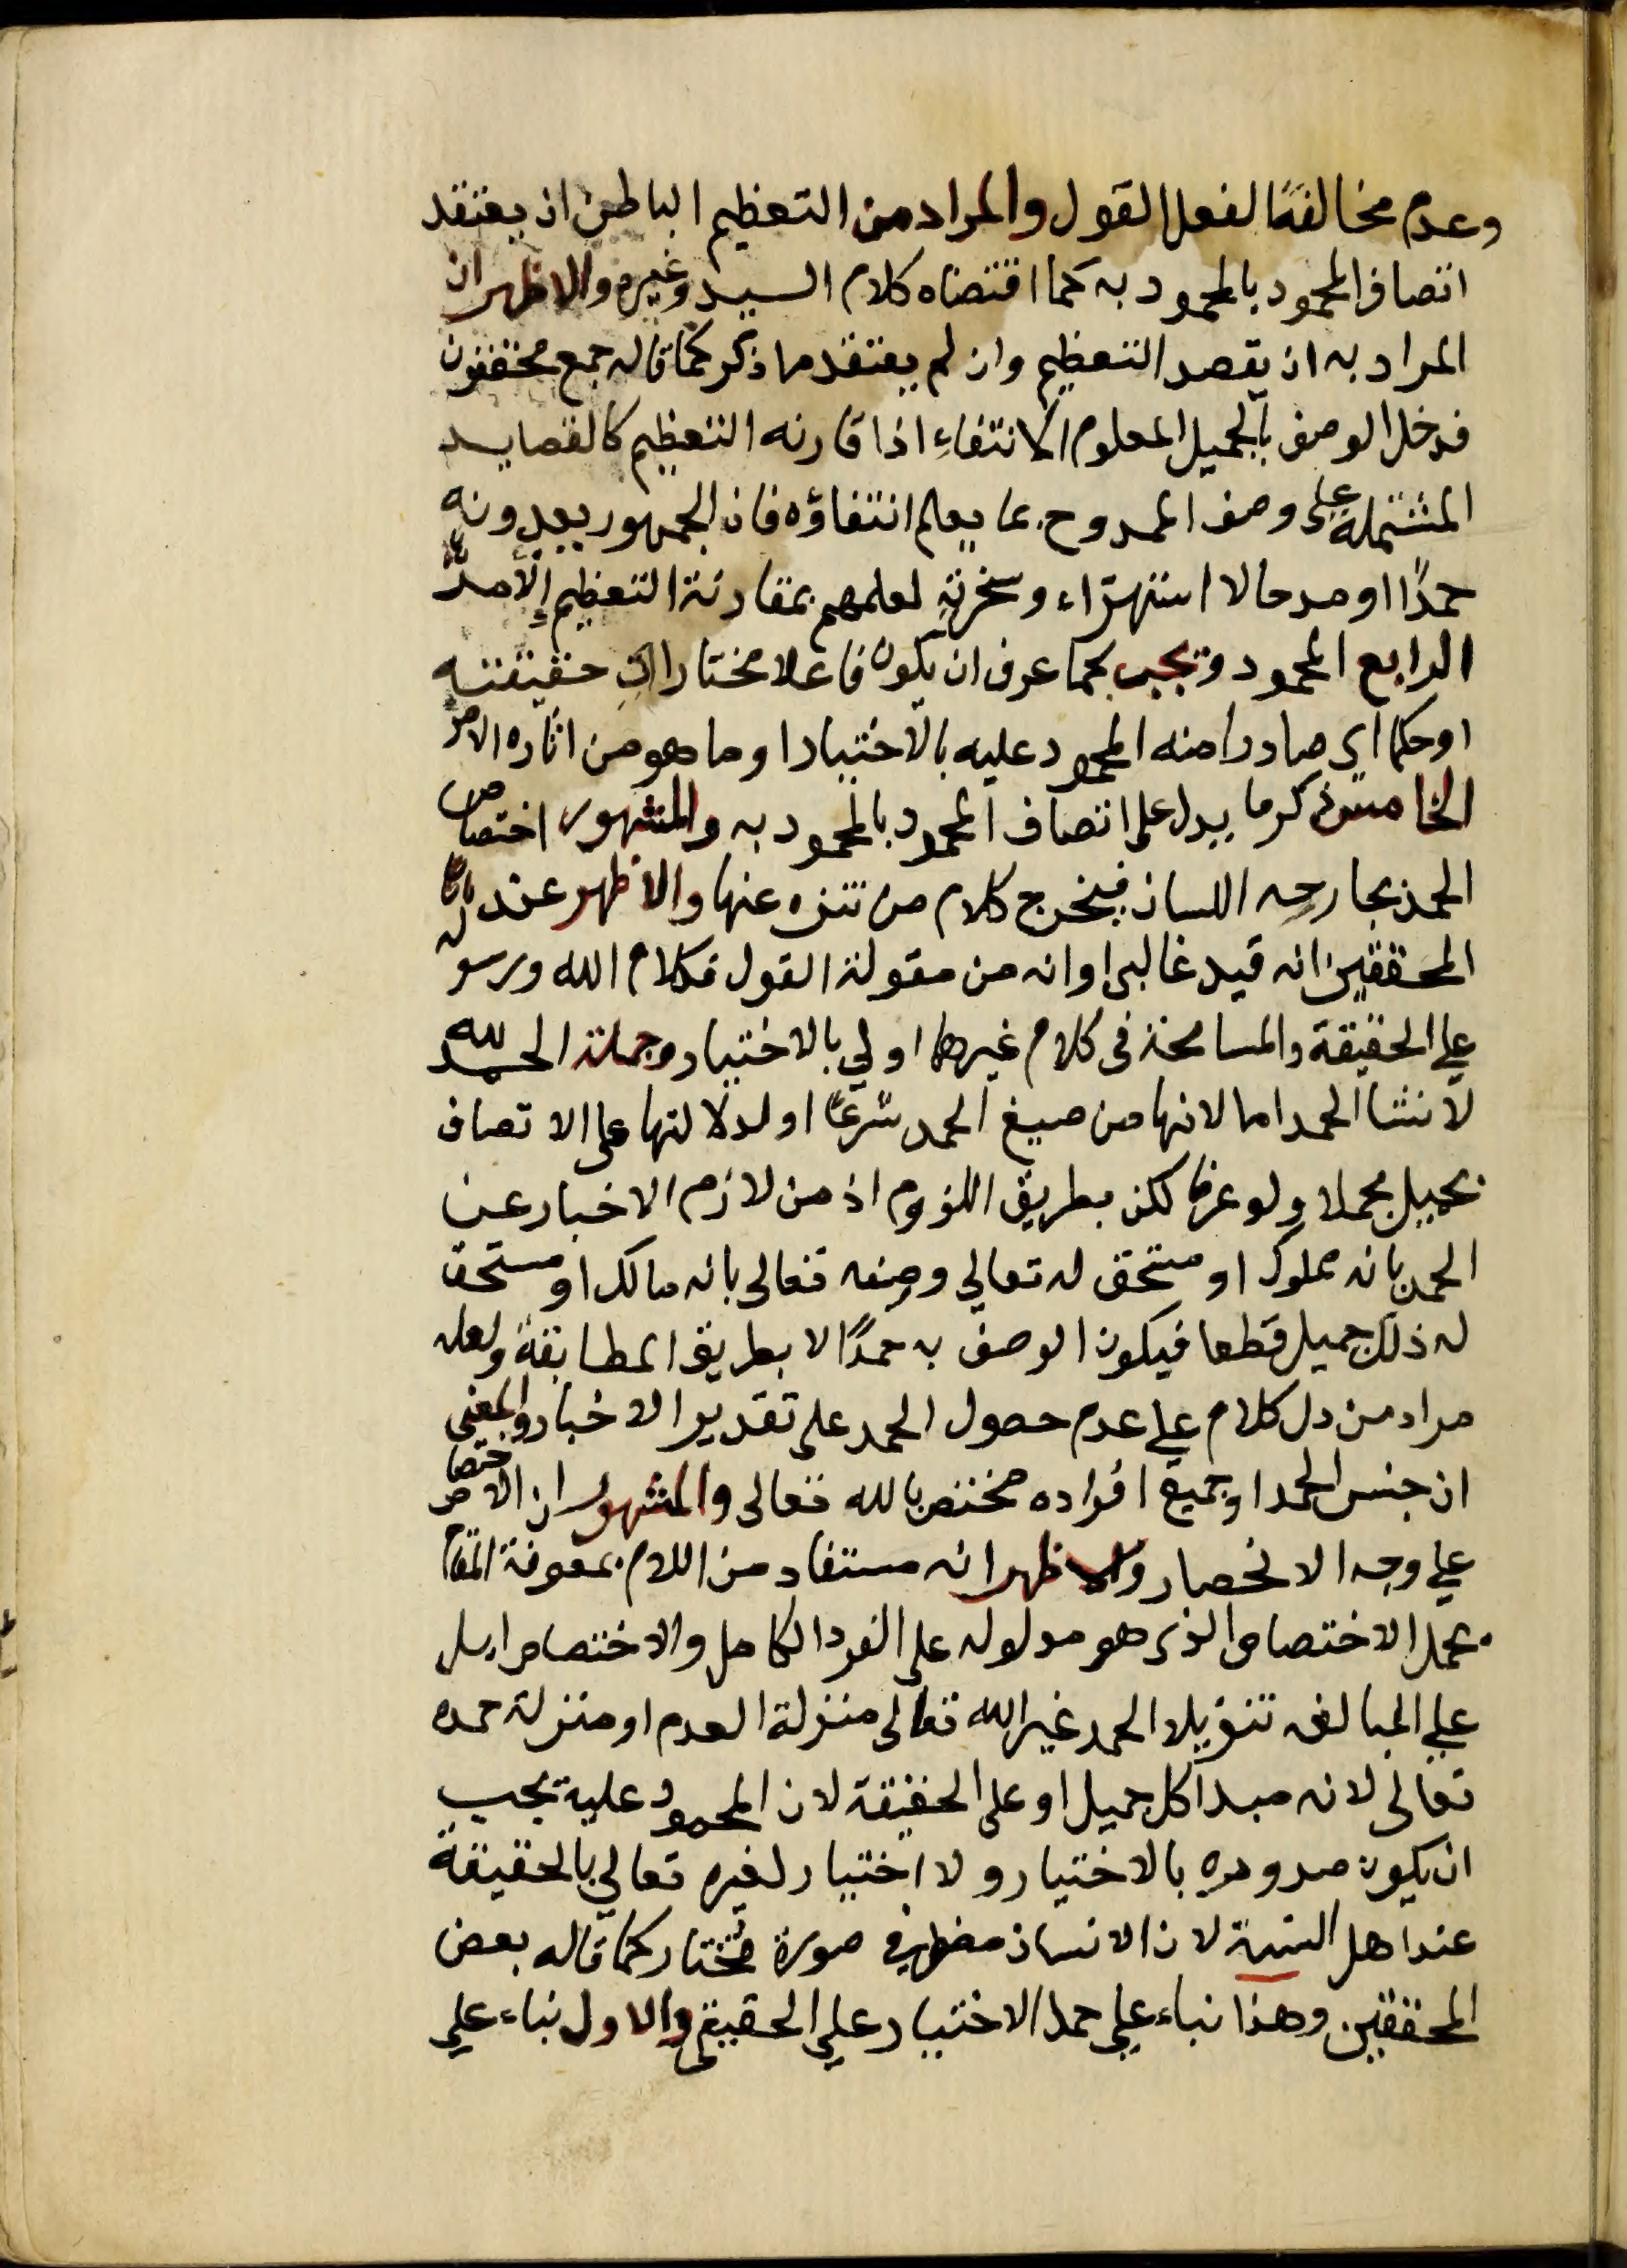 وعدم مخالفة الفعل القول والمراد من التعظيم الباطن ان يعتقد
اتصاف المحمود بالمحمود به كما اقتضاه كلام السيد وغيره والاظهر ان
المراد به ان يقصد التعظيم وان لم يعتقد ما ذكر كما قاله جمع محققون
فدخل الوصف بالجميل المعلوم الانتفاء اذا قارنه التعظيم كالقصايد
المشتملة على وصف الممدوح بما يعلم انتفاؤه فان الجمهور يعدونه
حمدًا او مدحا لا استهزاء وسخرية لعلمهم بمقارنة التعظيم الامر
الرابع المحمود ويجب كما عرف ان يكون فاعلا مختارا اي حقيقته
او حكما اي صادرا منه المحمود عليه بالاختيار او ما هو من اثاره الامر
الخامس ذكر ما يدل على اتصاف المحمود بالمحمود به والمشهور اختصاص
الحمد بجارحه اللسان فيخرج كلام من تنزه عنها والاظهر عند
المحققين انه قيد غالبي او انه من مقولة القول فكلام الله ورسوله
علي الحقيقة والمسامحة في كلام غيرهما اولي بالاختيار وجملة الحمد لله
لانشا الحمد اما لانها من صيغ الحمد شرعًا او لدلالتها على الاتصاف
بجميل مجملا ولو عرفا لكن بطريق اللزوم اذ من لازم الاخبار عن
الحمد بانه مملوك او مستحق له تعالي وصفه تعالى بانه مالك او مستحق
له ذلك جميل قطعا فيكون الوصف به حمدًا لا بطريق المطابقة ولعله
مراد من دل كلام علي عدم حصول الحمد على تقدير الاخبار والمعنى
ان جنس الحمد او جميع افراده مختص بالله تعالى والمشهور ان الاختصاص
علي وجه الانحصار والاظهر انه مستفاد من اللام بمعونة المقام
بحمل الاختصاص الذي هو مدلوله على الفرد الكامل والاختصاص اما
علي المبالغه تنزيلا لحمد غير الله تعالى منزلة العدم او منزلة حمده
تعالى لانه مبدأ كل جميل او على الحقيقة لان المحمود عليه يجب
ان يكون صدوره بالاختيار ولا اختيار لغيره تعالي بالحقيقة
عند اهل السنة لان الانسان مضطر في صورة مختار كما قاله بعض
المحققين وهذا بناء علي حمل الاختيار علي الحقيقي والاول بناء علي